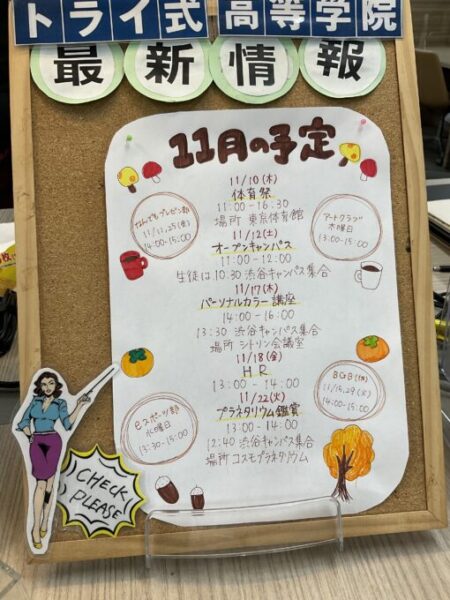 トライ式高等学院
最新情報
11月の予定
11/10(木)
体育祭
11:00-16:30
場所 東京体育館
11/12(土)
オープンキャンパス
11:00-12:00
生徒は10:30渋谷キャンパス集合
11/17(木)
パーソナルカラー講座
14:00-16:00
13:30渋谷キャンパス集合
場所 シトリン会議室
11/18(金)
HR
13:00-14:00
11/22(火)
プラネタリウム鑑賞
13:00-14:00
12:40渋谷キャンパス集合
場所 コスモプラネタリウム
なんでもプレゼン部
11/11,25(金)
14:00-15:00
アートクラブ
木曜日
13:00-15:00
eスポーツ部
水曜日
13:30-15:00
11/15,29(火)
14:00-15:00
CHECK
PLEASE